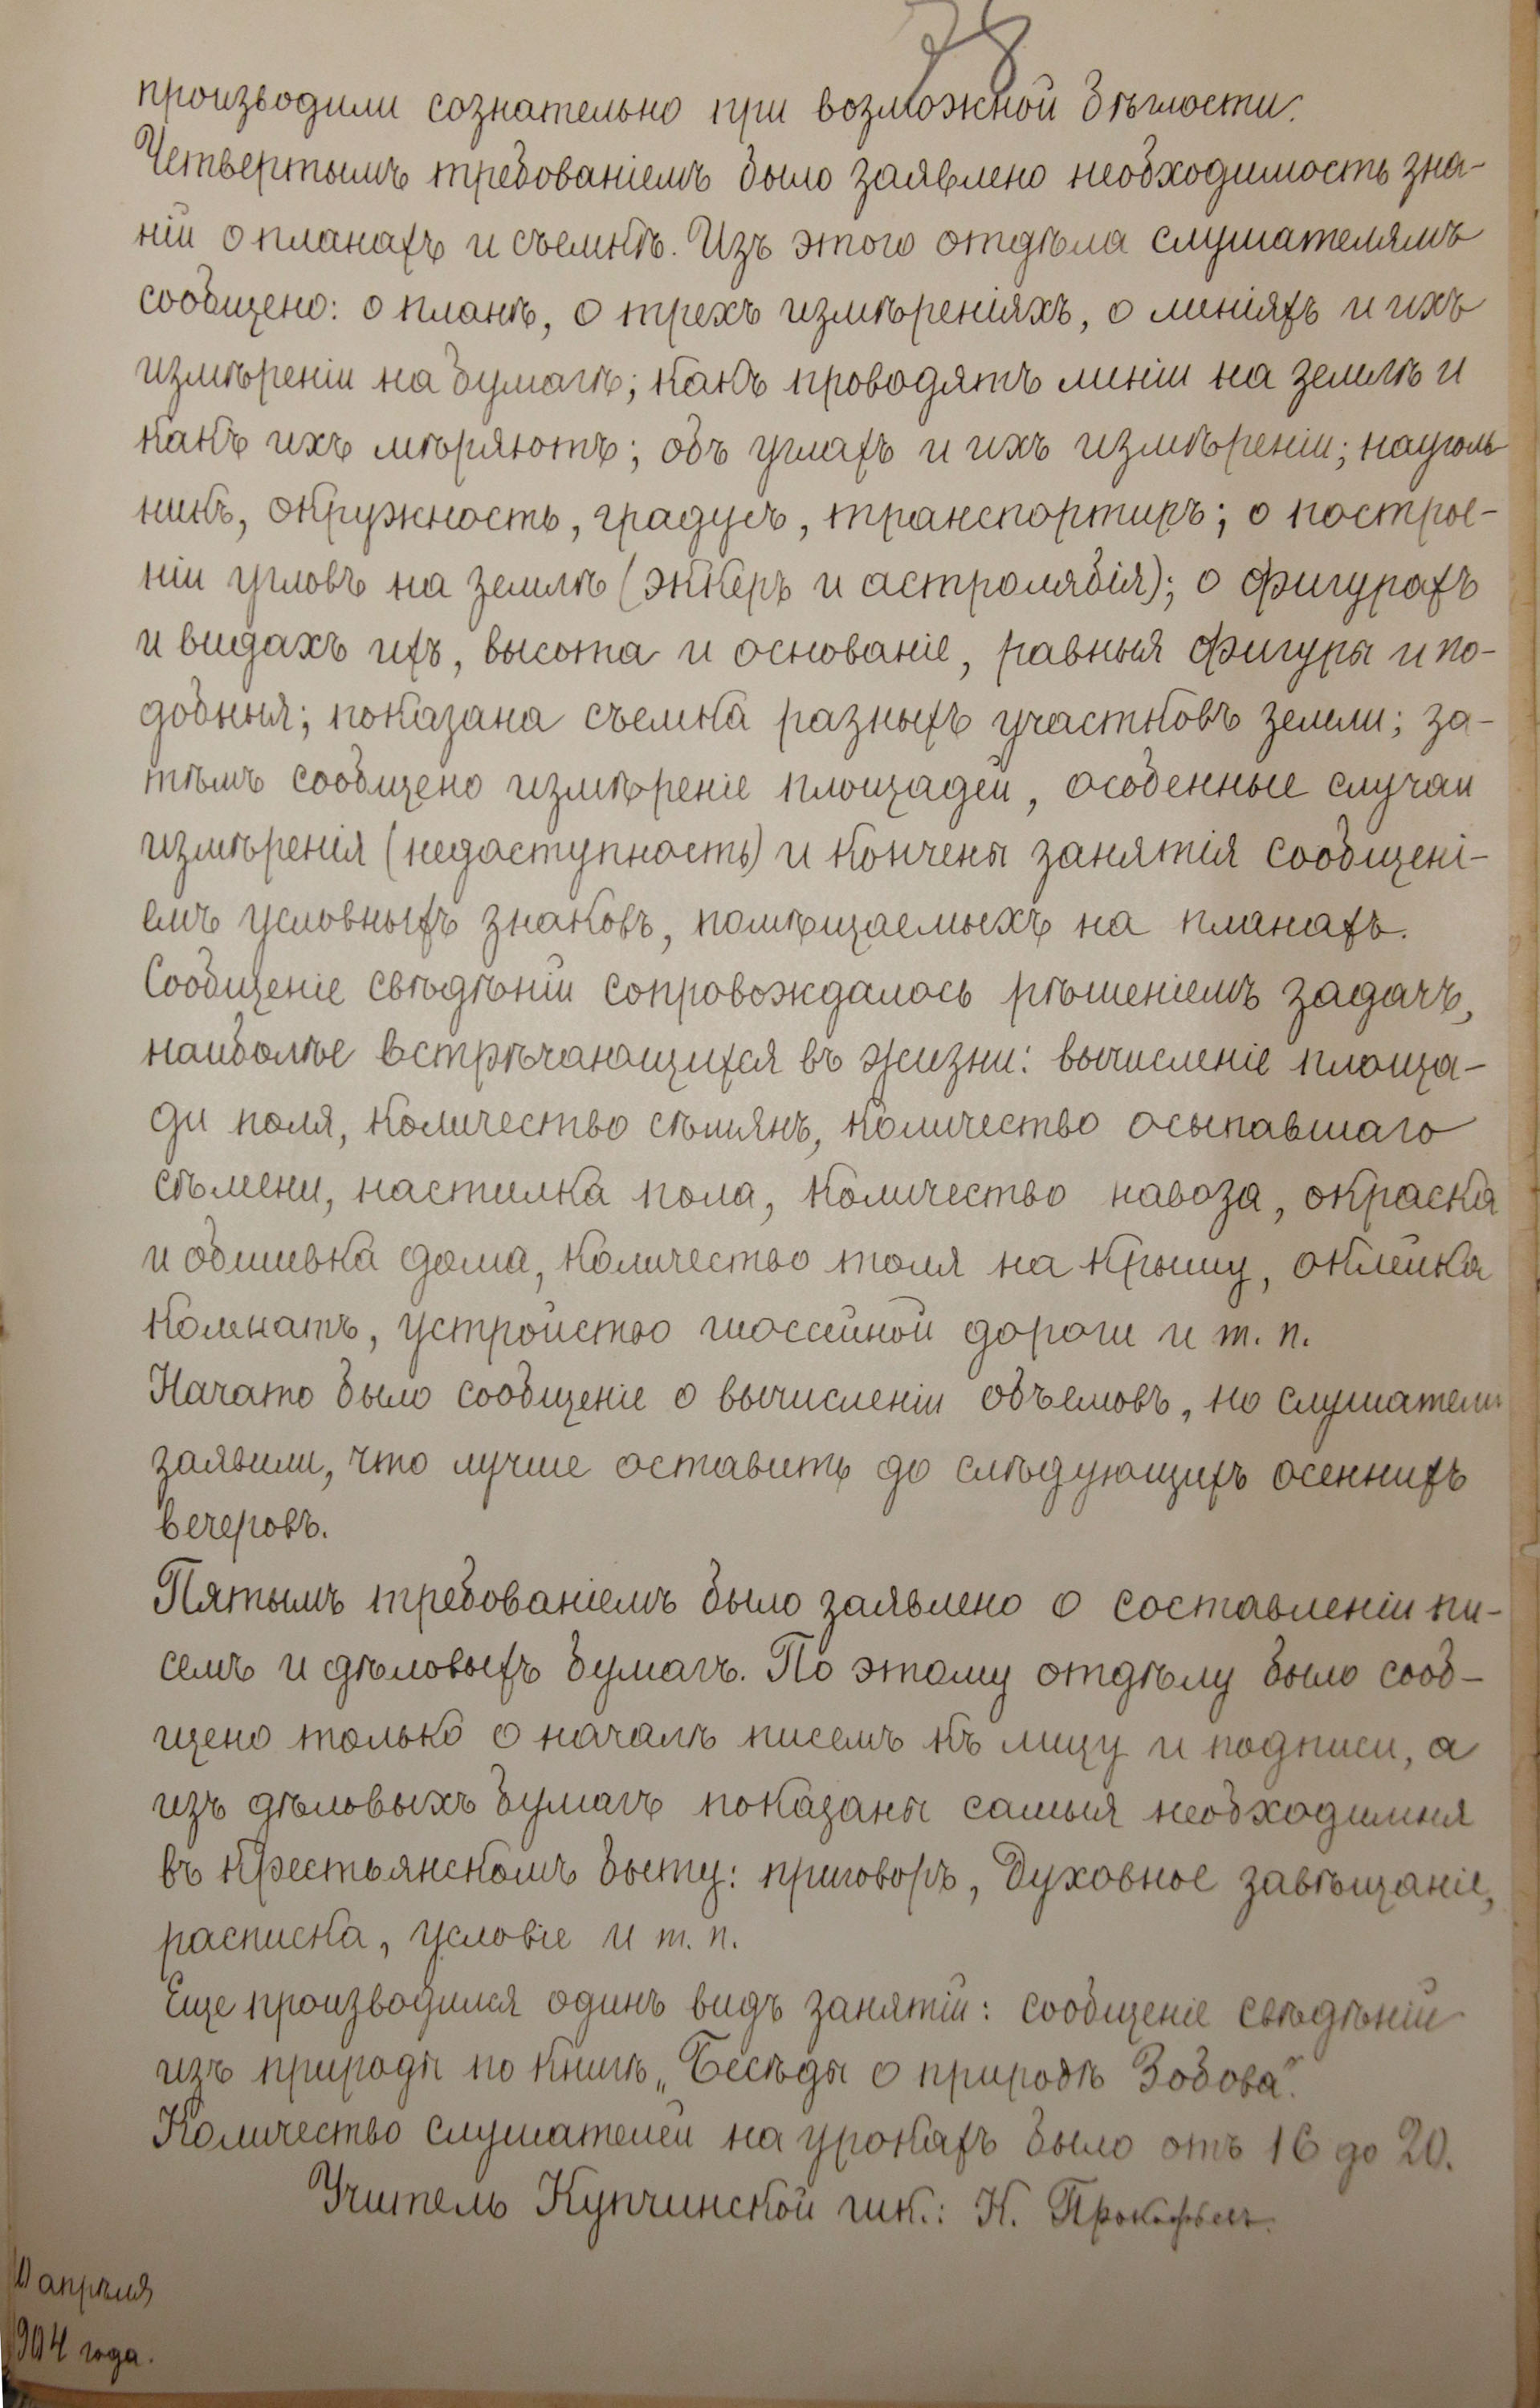 78
производили сознательно при возможной бѣглости.
Четвертымъ требованіемъ было заявлено необходимость зна-
ній о планахъ и съемкѣ. Изъ этого отдѣла слушателямъ
сообщено: о планѣ, о трехъ измѣреніяхъ, о линіяхъ и ихъ
измѣреніи на бумагѣ; какъ проводятъ линіи на землѣ и
какъ ихъ мѣряютъ; объ углахъ и ихъ измѣреніи; науголь
никъ, окружность, градусъ, транспортиръ; о построе-
ніи угловъ на землѣ (эккеръ и астролябія); о фигурахъ
и видахъ ихъ, высота и основаніе, равныя фигуры и по-
добныя; показана съемка разныхъ участковъ земли; за-
тѣмъ сообщено измѣреніе площадей, особенные случаи
измѣренія (недоступность) и кончены занятія сообщені-
емъ условныхъ знаковъ, помѣщаемыхъ на планахъ.
Сообщеніе свѣдѣній сопровождалось рѣшеніемъ задачъ,
наиболѣе встрѣчающихся въ жизни: вычисленіе площа-
ди поля, количество сѣмянъ, количество осыпавшаго
сѣмени, настилка пола, количество навоза, окраска
и обшивка дома, количество толя на крышу, оклейка
комнатъ, устройство шоссейной дороги и т. п.
Начато было сообщеніе о вычисленіи объемовъ, но слушатели
заявили, что лучше оставить до слѣдующихъ осеннихъ
вечеровъ.
Пятымъ требованіемъ было заявлено о составленіи пи-
семъ и дѣловыхъ бумагъ. По этому отдѣлу было сооб-
щено только о началѣ писемъ къ лицу и подписи, а
изъ дѣловыхъ бумагъ показаны самыя необходимыя
въ крестьянскомъ быту: приговоръ, духовное завѣщаніе,
расписка, условіе и т. п.
Еще производился одинъ видъ занятій: сообщеніе свѣдѣній
изъ природы по книгѣ „Бесѣды о природѣ Зобова".
Количество слушателей на урокахъ было отъ 16 до 20.
Учитель Купчинской шк.: Н. Прокофьевъ.
апрѣля
904 года.